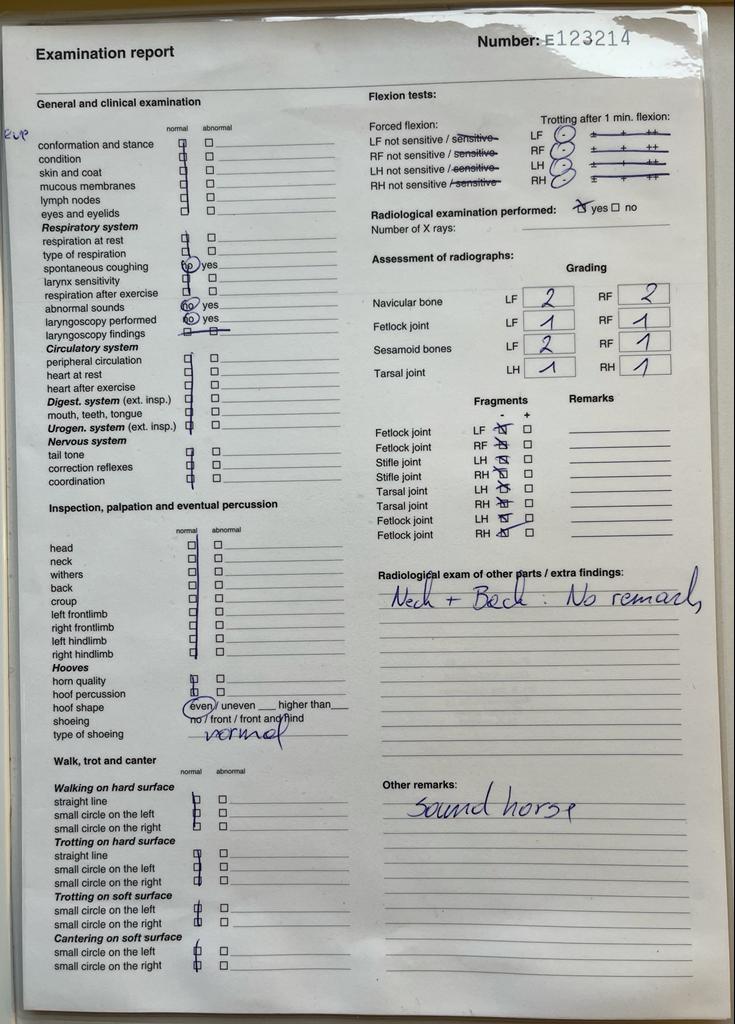 Examination report
Number: E123214
General and clinical examination
normal abnormal
conformation and stance
condition
skin and coat
mucous membranes
lymph nodes
eyes and eyelids
Respiratory system
respiration at rest
type of respiration
spontaneous coughing no yes
larynx sensitivity
respiration after exercise
abnormal sounds no yes
laryngoscopy performed no yes
laryngoscopy findings
Circulatory system
peripheral circulation
heart at rest
heart after exercise
Digest. system (ext. insp.)
mouth, teeth, tongue
Urogen. system (ext. insp.)
Nervous system
tail tone
correction reflexes
coordination
Inspection, palpation and eventual percussion
normal abnormal
head
neck
withers
back
croup
left frontlimb
right frontlimb
left hindlimb
right hindlimb
Hooves
horn quality
hoof percussion
hoof shape even / uneven ___ higher than___
shoeing no / front / front and hind
type of shoeing normal
Walk, trot and canter
normal abnormal
Walking on hard surface
straight line
small circle on the left
small circle on the right
Trotting on hard surface
straight line
small circle on the left
small circle on the right
Trotting on soft surface
small circle on the left
small circle on the right
Cantering on soft surface
small circle on the left
small circle on the right
Flexion tests:
Forced flexion: Trotting after 1 min. flexion:
LF not sensitive / sensitive LF - ± + ++
RF not sensitive / sensitive RF - ± + ++
LH not sensitive / sensitive LH - ± + ++
RH not sensitive / sensitive RH - ± + ++
Radiological examination performed: yes no
Number of X rays:
Assessment of radiographs:
Grading
Navicular bone LF 2 RF 2
Fetlock joint LF 1 RF 1
Sesamoid bones LF 2 RF 1
Tarsal joint LH 1 RH 1
Fragments Remarks
- +
Fetlock joint LF
Fetlock joint RF
Stifle joint LH
Stifle joint RH
Tarsal joint LH
Tarsal joint RH
Fetlock joint LH
Fetlock joint RH
Radiological exam of other parts / extra findings:
Neck + Back : No remarks
Other remarks:
Sound horse